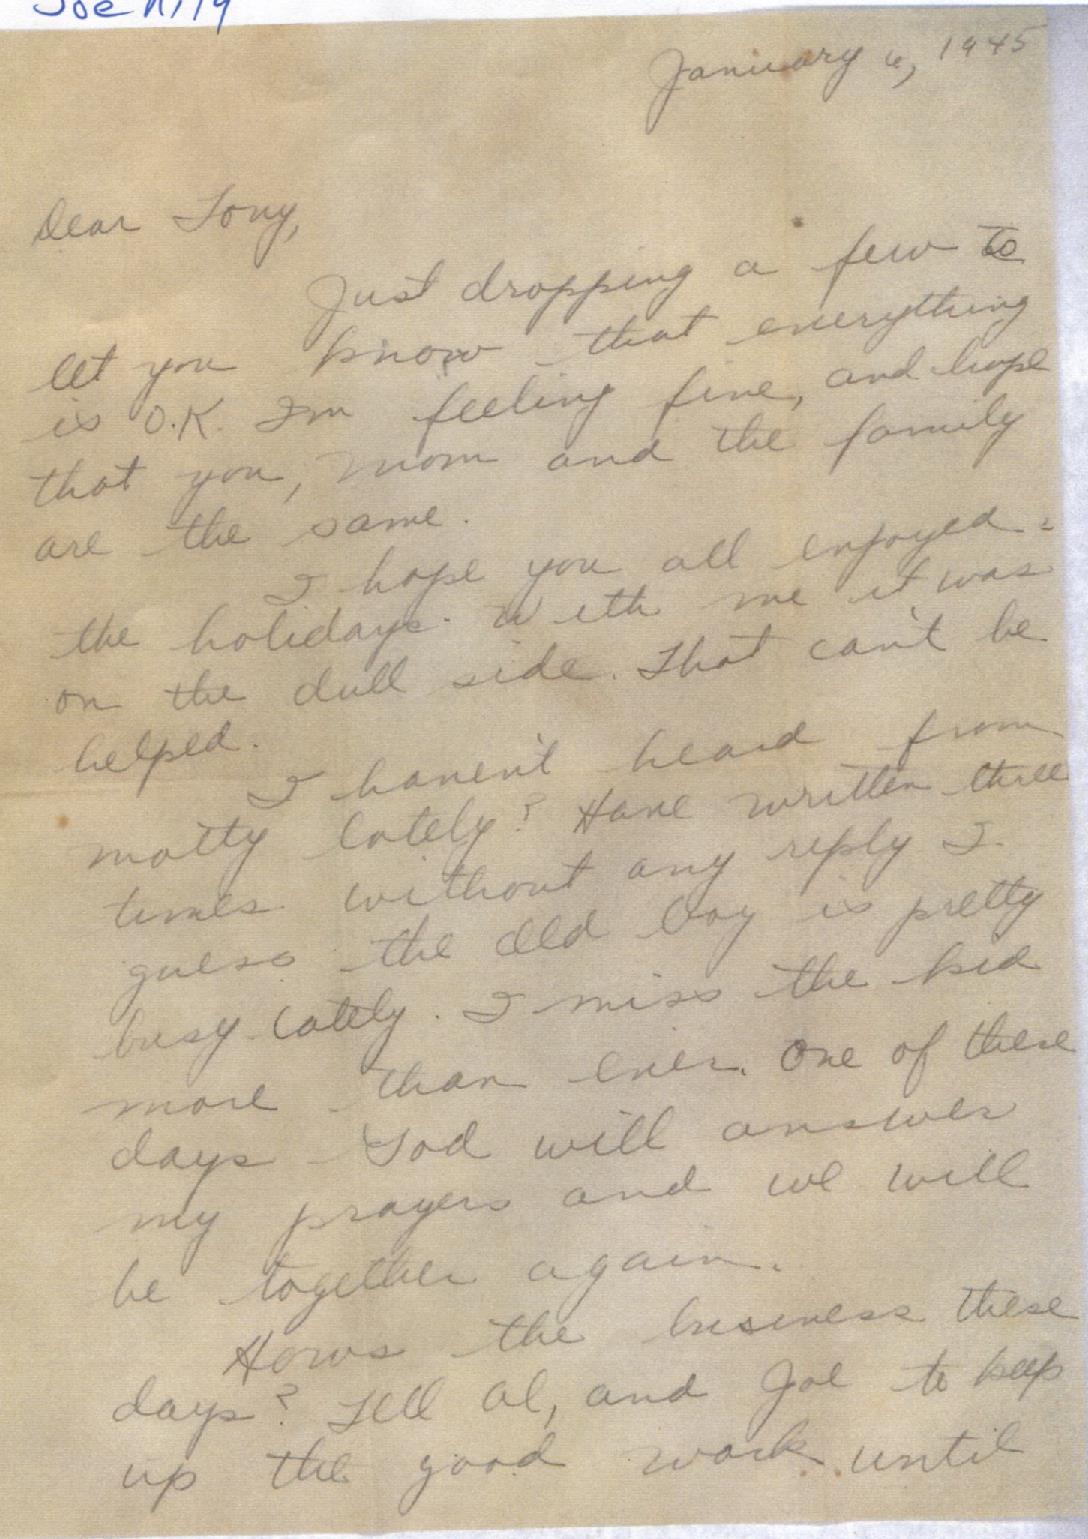 Joe
January 6, 1945
Dear Tony,
Just dropping a few to
let you know that everything
is O.K. I'm feeling fine, and hope
that you, mom and the family
are the same.
I hope you all enjoyed
the holidays. With me it was
on the dull side. That can't be
helped.
I haven't heard from
matty lately? Have written three
times without any reply I
guess the old boy is pretty
busy lately. I miss the kid
more than ever. One of these
days God will answer
my prayers and we will
be together again.
Hows the business these
days? Tell Al, and Joe to keep
up the good work until